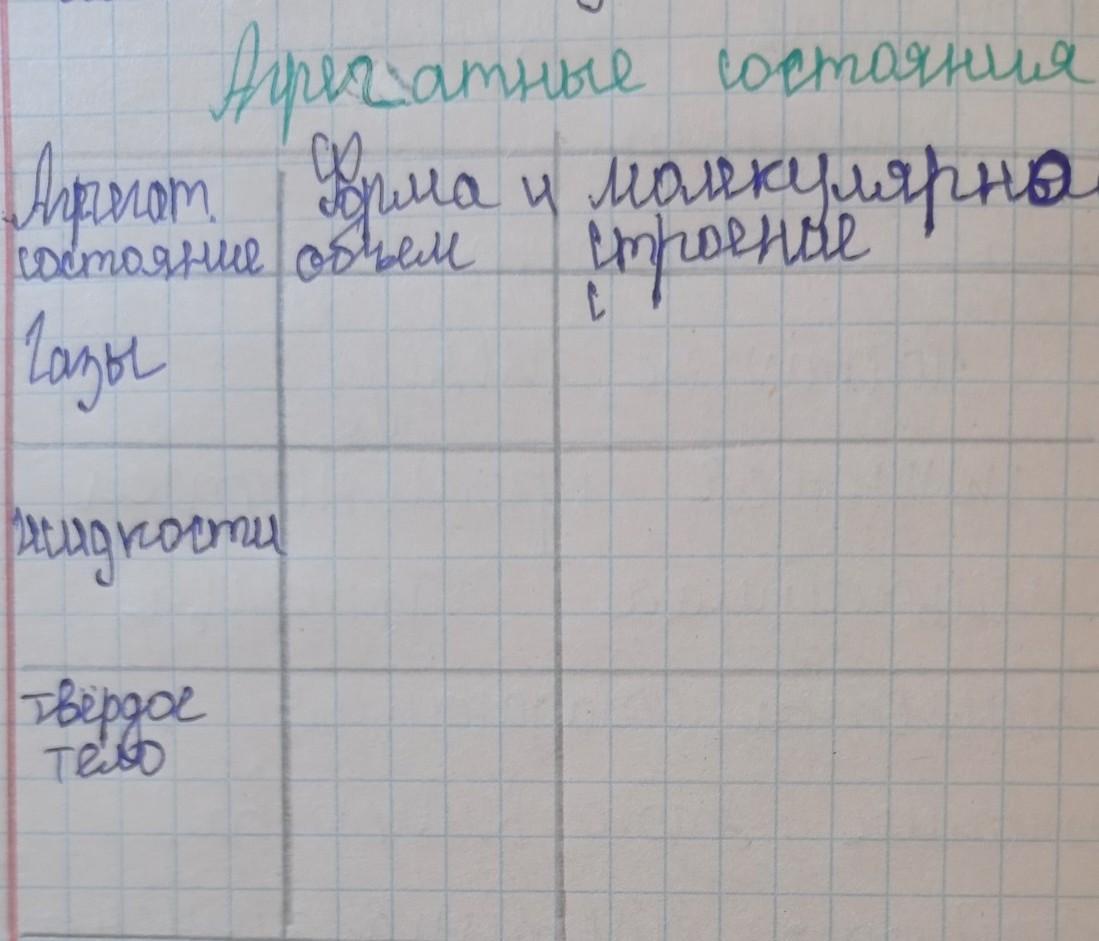 Агрегатные состояния
Агрегат. Форма и молекулярно
состояние объем строение
с
Газы
жидкости
твёрдое
тело